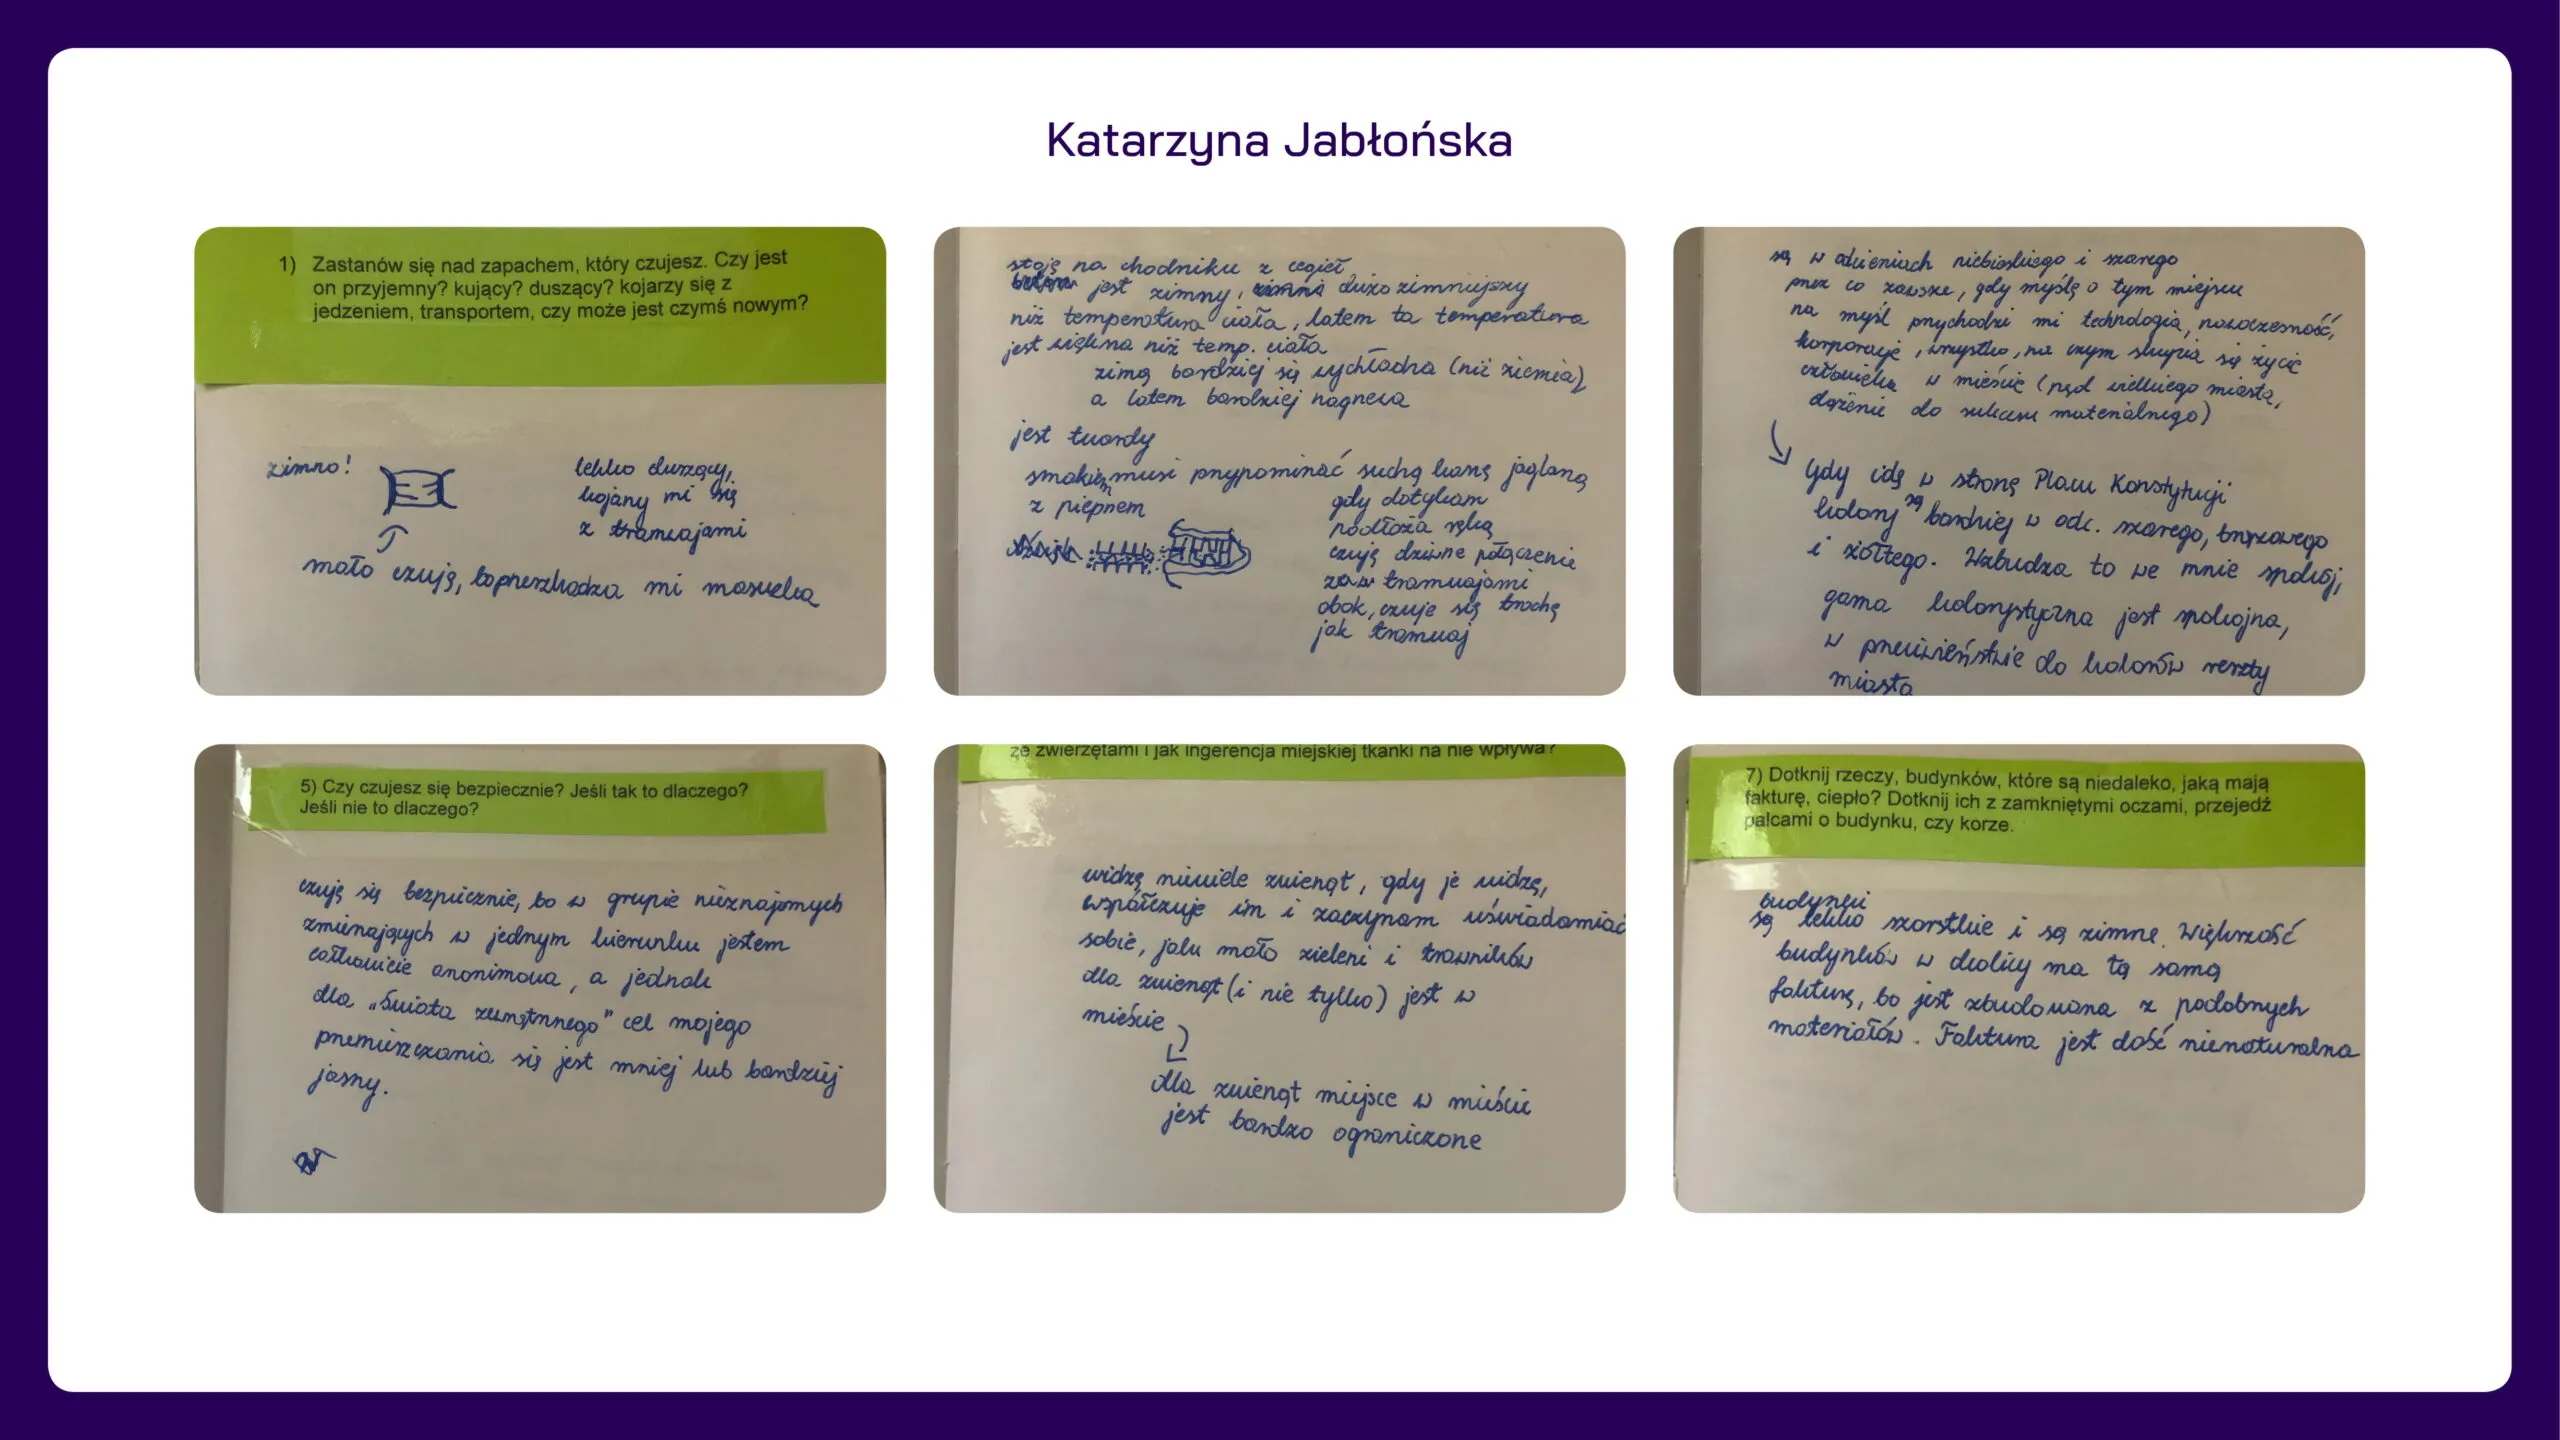 Katarzyna Jabłońska
1) Zastanów się nad zapachem, który czujesz. Czy jest
on przyjemny? kujący? duszący? kojarzy się z
jedzeniem, transportem, czy może jest czymś nowym?
zimno!
lekko duszący,
kojarzy mi się
z tramwajami
mało czuję, bo przeszkadza mi maseczka
stoję na chodniku z cegieł
jest zimny, dużo zimniejszy
niż temperatura ciała, latem ta temperatura
jest większa niż temp. ciała
zimą bardziej się wychładza (niż ziemia),
a latem bardziej nagrzewa
jest twardy
smakiem musi przypominać suchą kaszę jaglaną
z pieprzem
gdy dotykam
podłoża ręką
czuję dziwne połączenie
z tramwajami
obok, czuje się trochę
jak tramwaj
są w odcieniach niebieskiego i szarego
przez co zawsze, gdy myślę o tym miejscu
na myśl przychodzi mi technologia, nowoczesność,
korporacje, wszystko, na czym skupia się życie
człowieka w mieście (pęd wielkiego miasta,
dążenie do sukcesu materialnego)
Gdy idę w stronę Placu Konstytucji
kolory są bardziej w odc. szarego, brązowego
i żółtego. Wzbudza to we mnie spokój,
gama kolorystyczna jest spokojna,
w przeciwieństwie do kolorów reszty
miasta
5) Czy czujesz się bezpiecznie? Jeśli tak to dlaczego?
Jeśli nie to dlaczego?
czuję się bezpiecznie, bo w grupie nieznajomych
zmierzających w jednym kierunku jestem
całkowicie anonimowa, a jednak
dla „świata zewnętrznego" cel mojego
przemieszczania się jest mniej lub bardziej
jasny.
ze zwierzętami i jak ingerencja miejskiej tkanki na nie wpływa?
widzę niewiele zwierząt, gdy je widzę,
współczuje im i zaczynam uświadamiać
sobie, jak mało zieleni i trawników
dla zwierząt (i nie tylko) jest w
mieście
dla zwierząt miejsce w mieście
jest bardzo ograniczone
7) Dotknij rzeczy, budynków, które są niedaleko, jaką mają
fakturę, ciepło? Dotknij ich z zamkniętymi oczami, przejedź
palcami o budynku, czy korze.
budynki
są lekko szorstkie i są zimne. Większość
budynków w okolicy ma tą samą
fakturę, bo jest zbudowana z podobnych
materiałów. Faktura jest dość nienaturalna